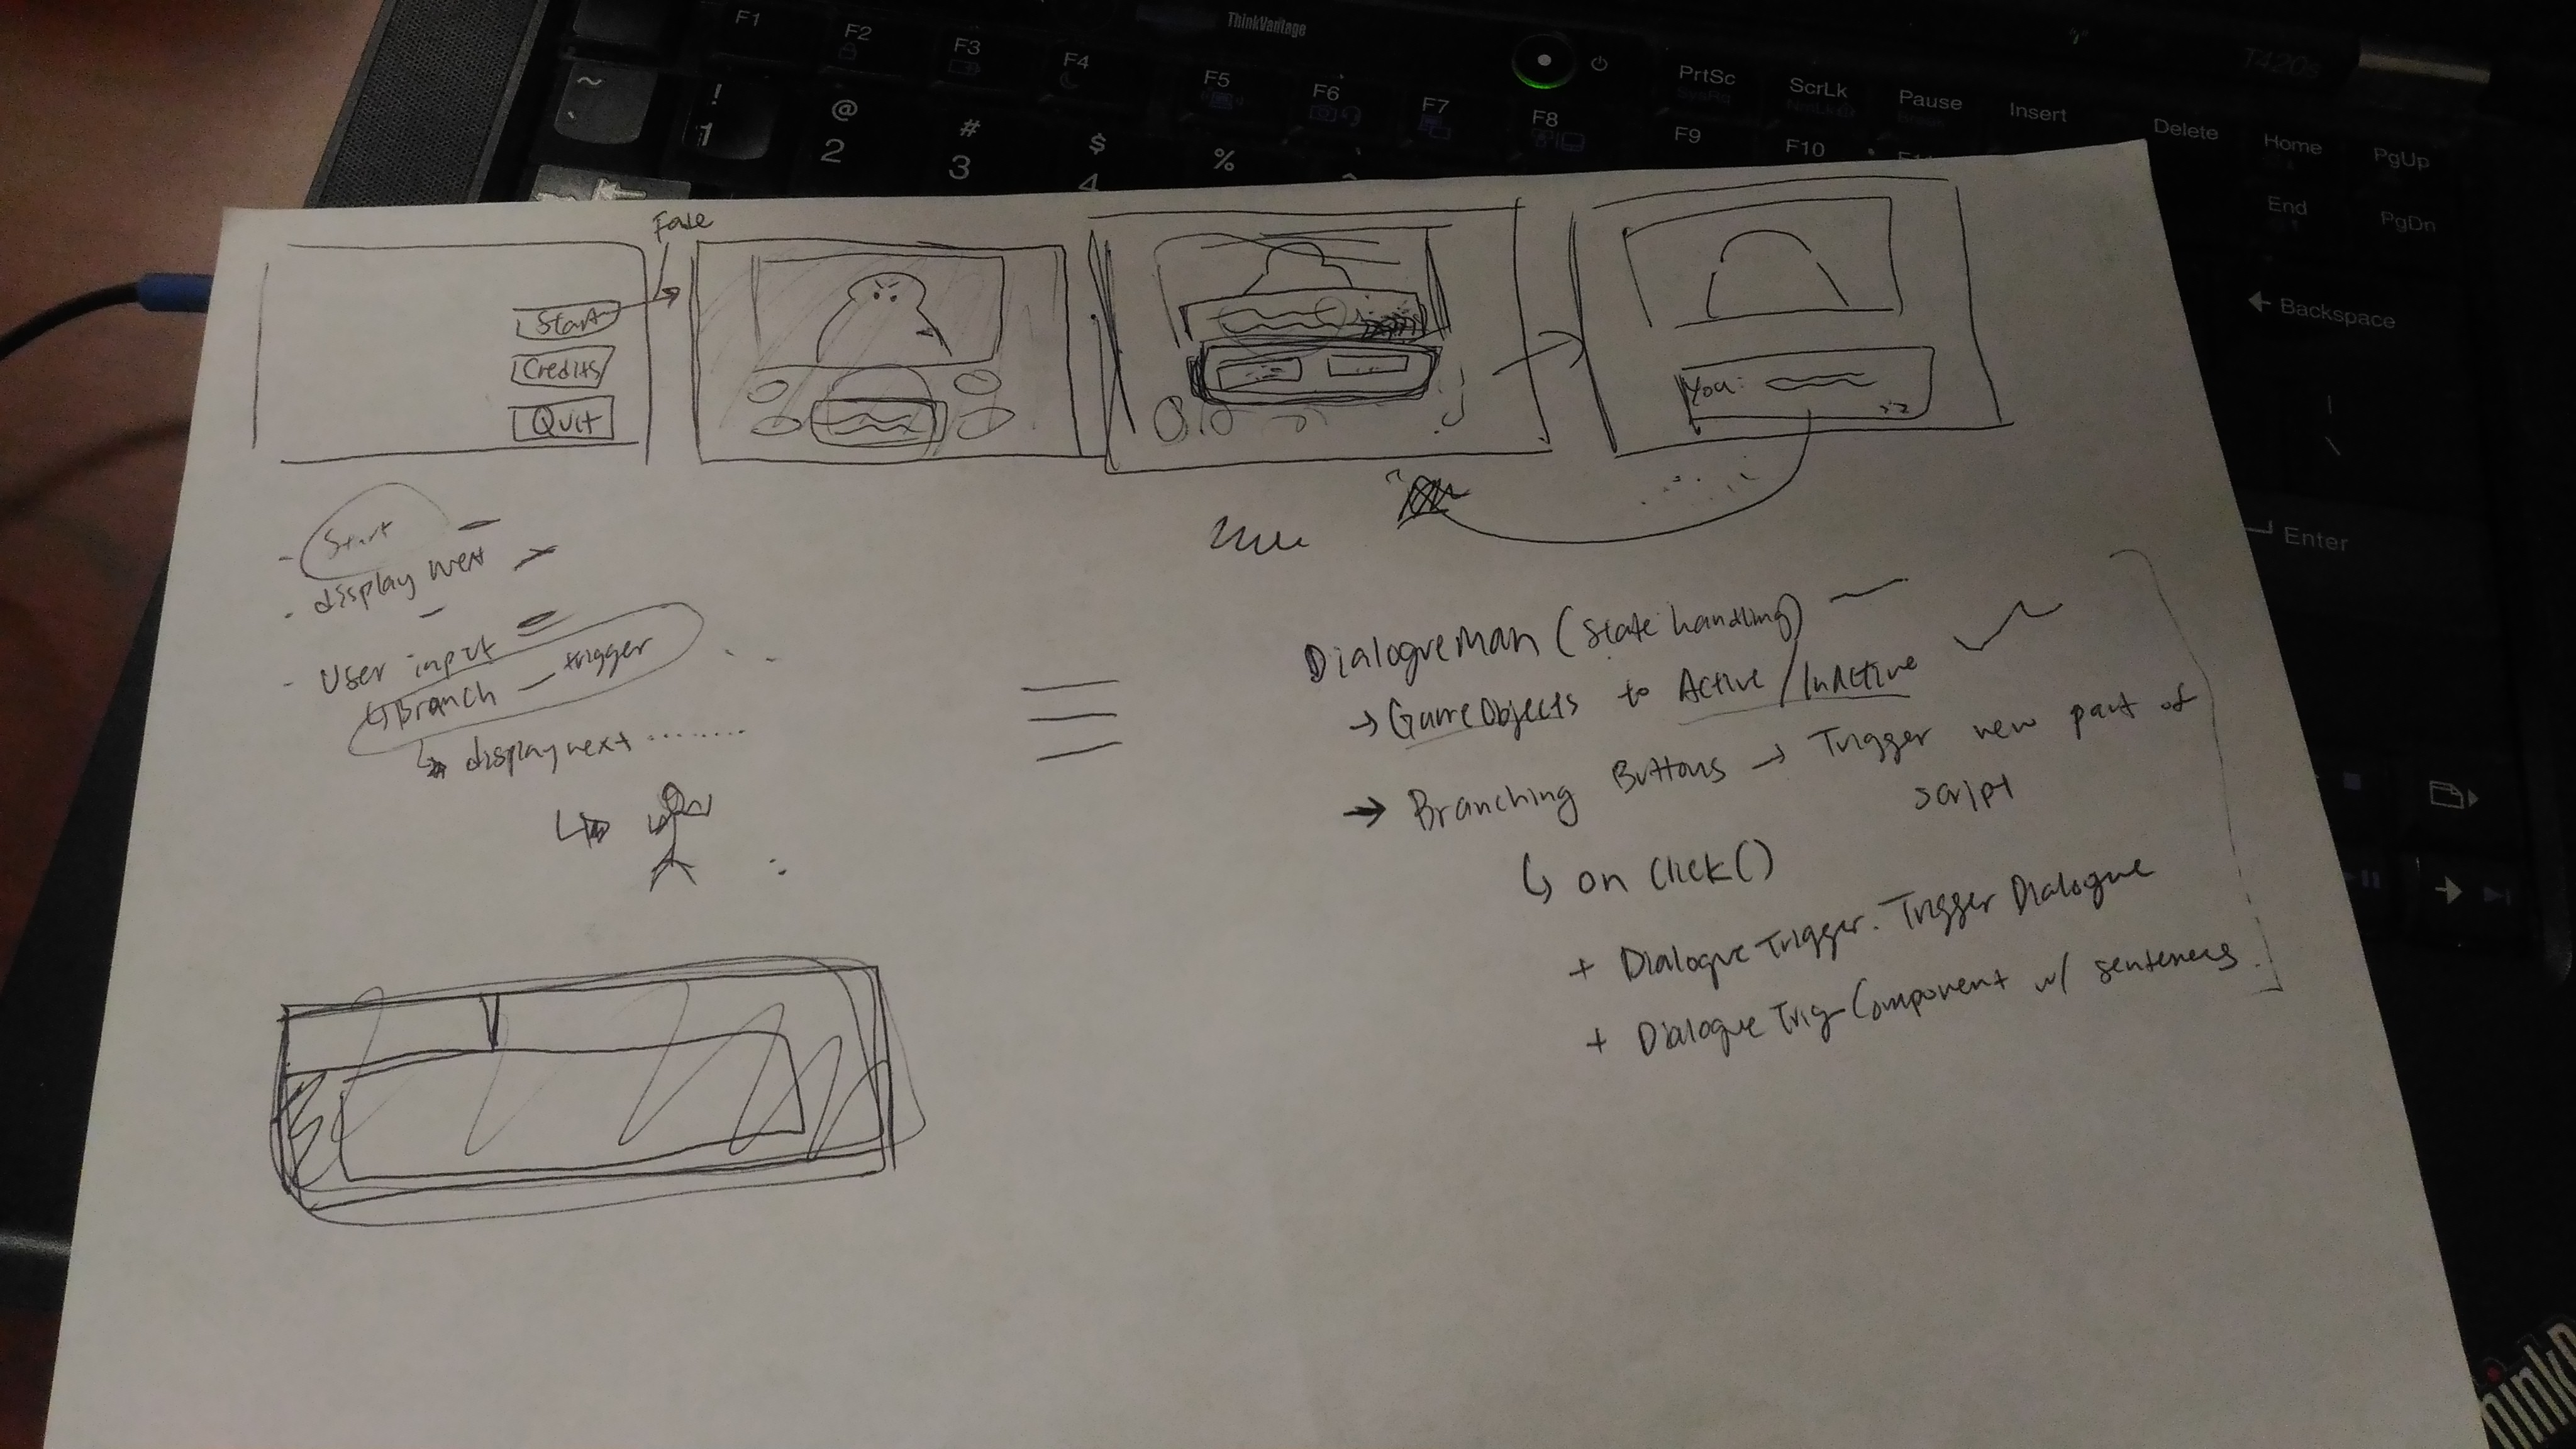 ThinkVantage
T420s
F1
F2
F3
F4
F5
F6
F7
F8
PrtSc
SysRq
ScrLk
NmLk
Pause
Break
Insert
Delete
Home
PgUp
F9
F10
End
PgDn
~
`
!
1
@
2
#
3
$
4
%
Backspace
|
\
Enter
Fade
Start
Credits
Quit
You:
- Start
- display next
- User input
Branch - trigger
display next ........
DialogueMan (state handling)
→ GameObjects to Active/InActive
→ Branching Buttons → Trigger new part of
script
↳ on click()
+ DialogueTrigger.TriggerDialogue
+ DialogueTrig-Component w/ sentences